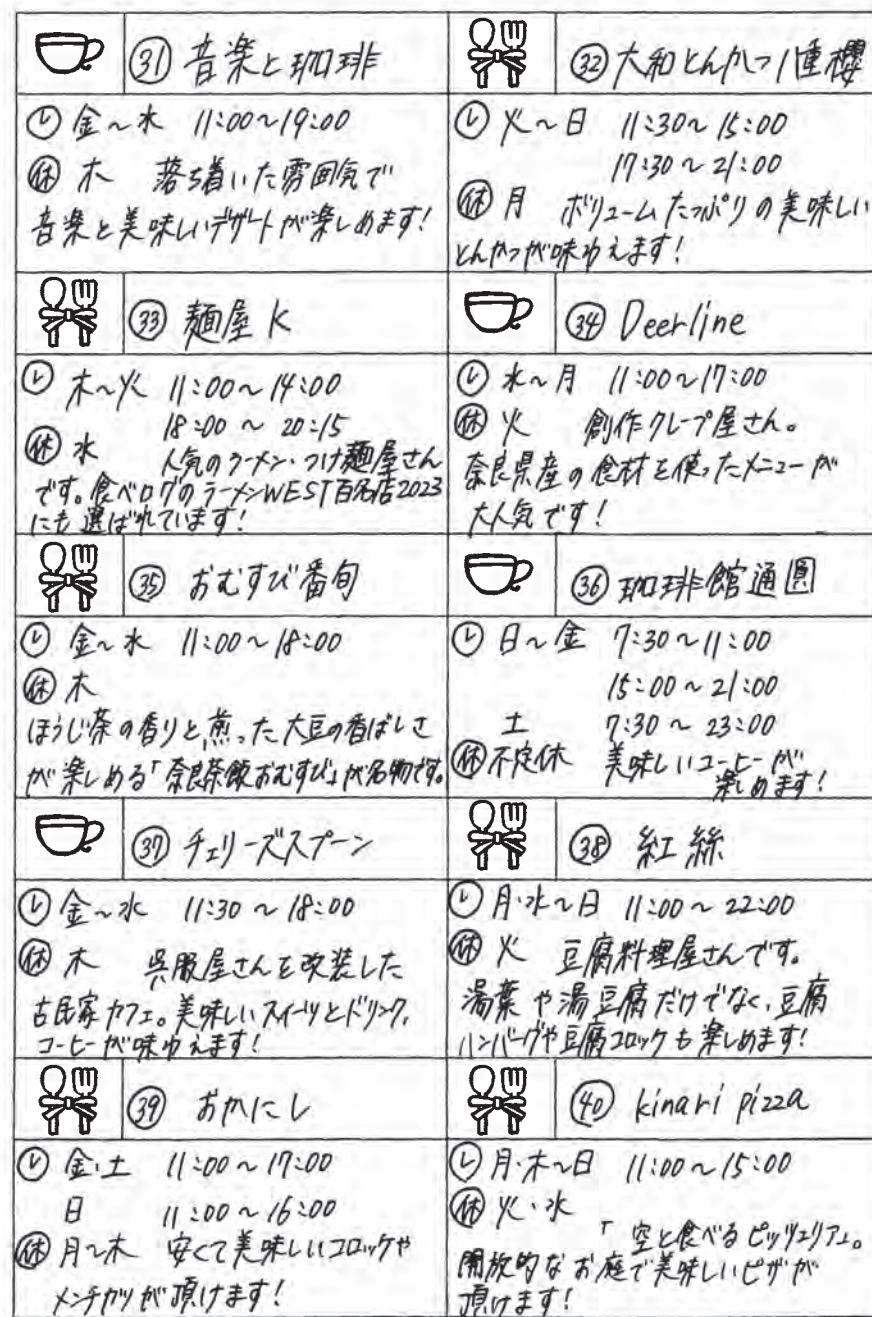 ㉛ 音楽と珈琲
金~水 11:00~19:00
休 木 落ち着いた雰囲気で
音楽と美味しいデザートが楽しめます!
㉜ 大和とんかつ八重櫻
火~日 11:30~15:00
17:30~21:00
休 月 ボリュームたっぷりの美味しい
とんかつが味わえます!
㉝ 麺屋K
木~火 11:00~14:00
18:00~20:15
休 水 人気のラーメン・つけ麺屋さん
です。食べログのラーメンWEST百名店2023
にも選ばれています!
㉞ Deerline
水~月 11:00~17:00
休 火 創作クレープ屋さん。
奈良県産の食材を使ったメニューが
大人気です!
㉟ おむすび番旬
金~水 11:00~18:00
休 木
ほうじ茶の香りと、煎った大豆の香ばしさ
が楽しめる「奈良茶飯おむすび」が名物です。
㊱ 珈琲館通圓
日~金 7:30~11:00
15:00~21:00
土 7:30~23:00
休 不定休 美味しいコーヒーが
楽しめます!
㊲ チェリーズスプーン
金~水 11:30~18:00
休 木 呉服屋さんを改装した
古民家カフェ。美味しいスイーツとドリンク、
コーヒーが味わえます!
㊳ 紅絲
月・水~日 11:00~22:00
休 火 豆腐料理屋さんです。
湯葉や湯豆腐だけでなく、豆腐
ハンバーグや豆腐コロッケも楽しめます!
㊴ おかにし
金・土 11:00~17:00
日 11:00~16:00
休 月~木 安くて美味しいコロッケや
メンチカツが頂けます!
㊵ kinari pizza
月・木~日 11:00~15:00
休 火・水
「空と食べるピッツェリア」。
開放的なお庭で美味しいピザが
頂けます!